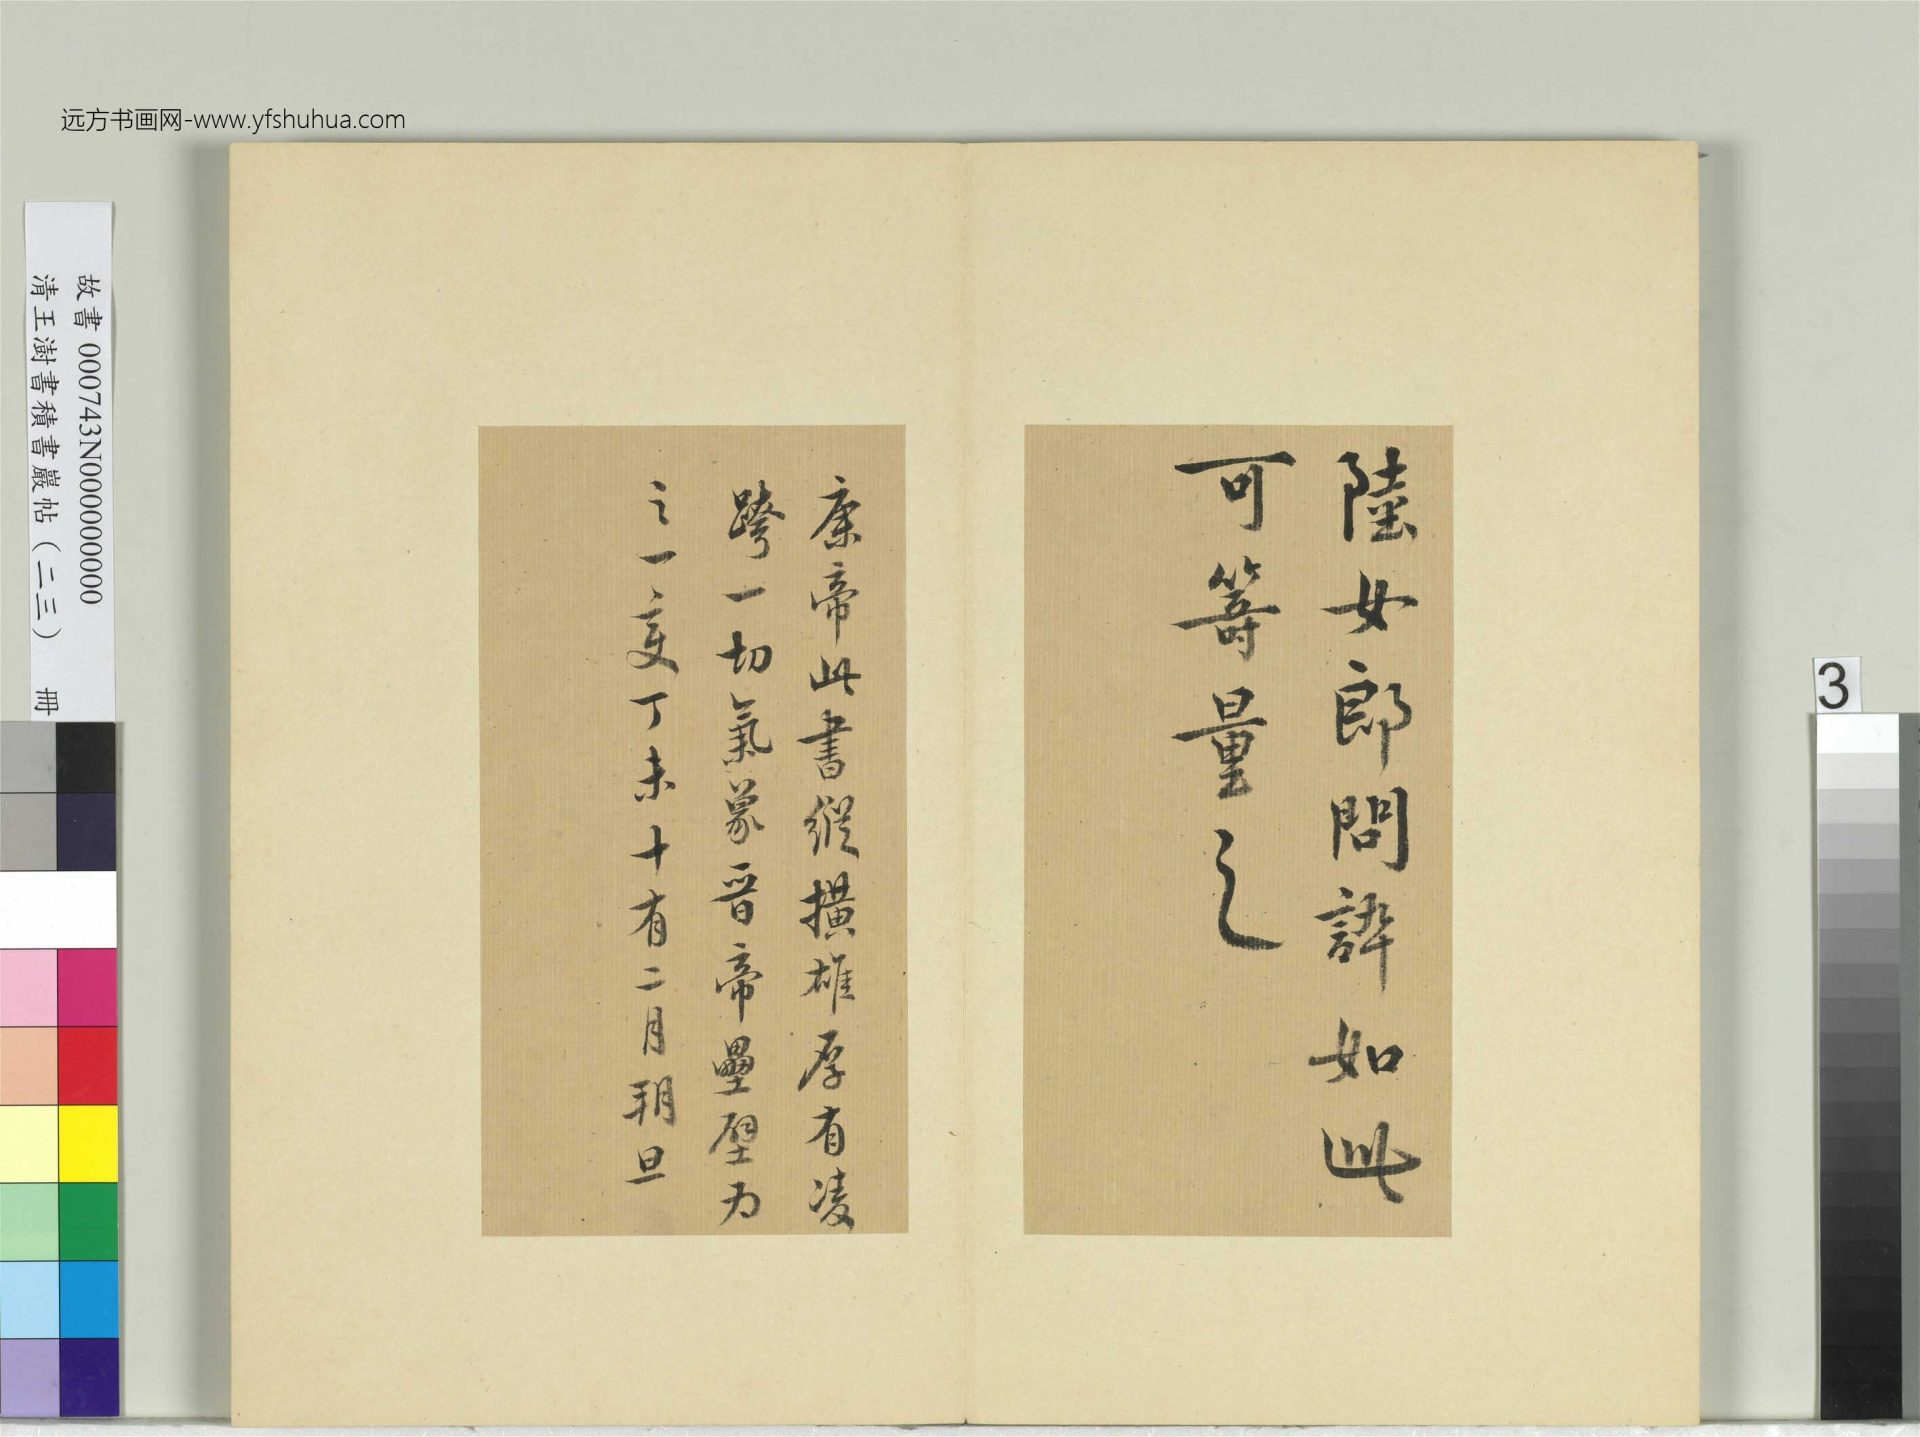 远方书画网-www.yfshuhua.com
故書 000743N000000000
清王澍書積書巖帖（二三） 冊
3
陸女郎問訊如此
可籌量之
康帝此書縱橫雄厚有凌
跨一切氣象晉帝壘壁為
之一變丁未十有二月朔旦